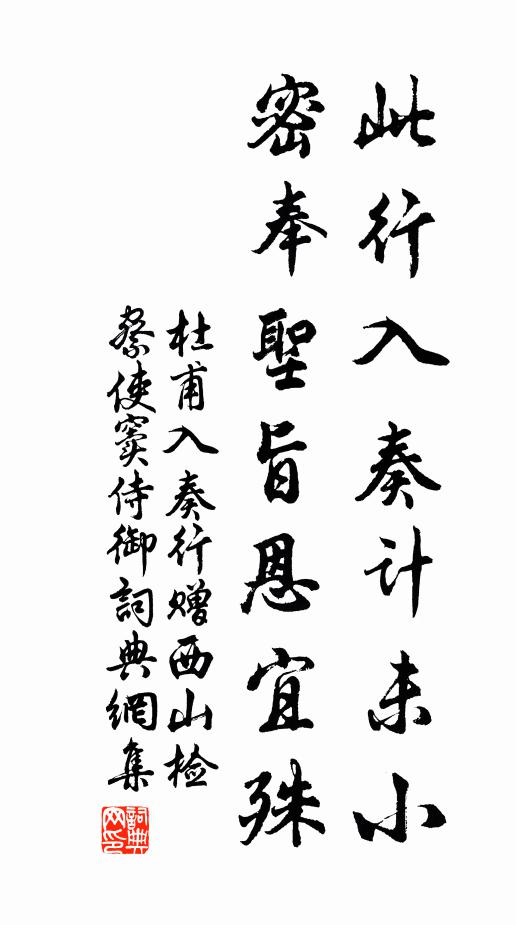 此行入奏计未小
密奉聖旨恩宜殊
杜甫入奏行赠西山检
察使窦侍御詞典網集
詞典
网印